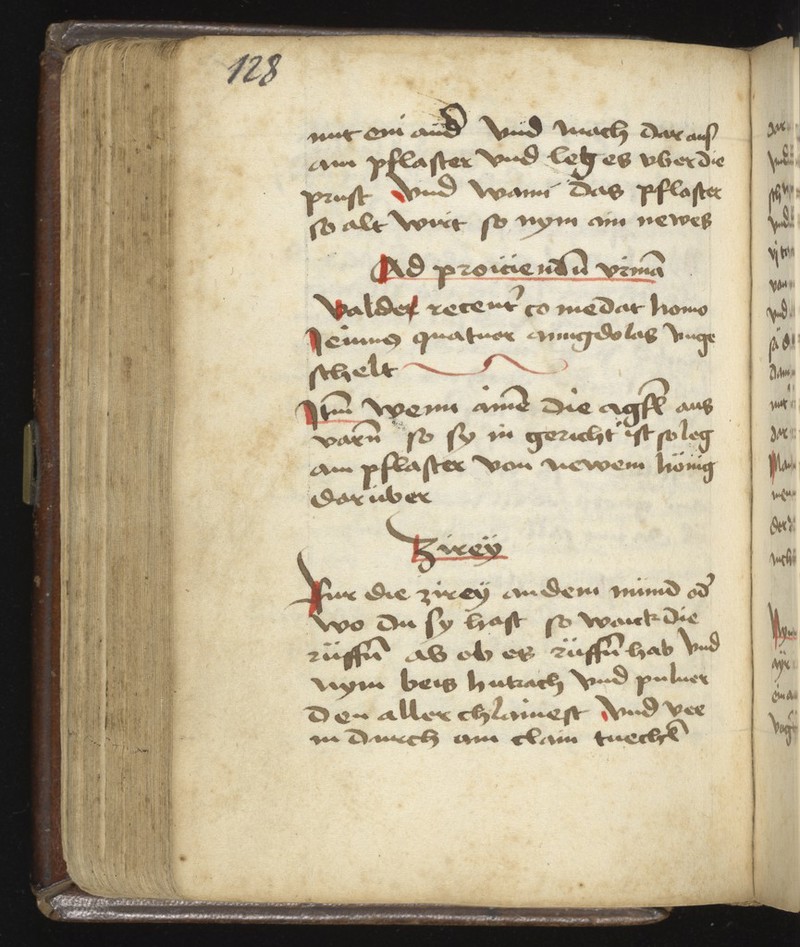 128
mit ein and vnd mach dar auſ
ain pflaster vnd leg es vber die
prust vnd wann das pflaster
so alt wirt so nym ain newes
Ad proiciendū vrinā
Valde recent comedat homo
Jeiunus quatuor amigdolas vnge
schelt
Jtm wenn aine die agſl aus
varn so sy in gericht ist so leg
ain pflaster von newem hönig
darüber
Zireÿ
Fur die zireÿ an dem mund od
wo du sy hast so waick die
rüffn als ob es rüffn hab vnd
nym beis hutrach vnd puluer
den aller chlainest vnd ree
in durch ain clain tuechl